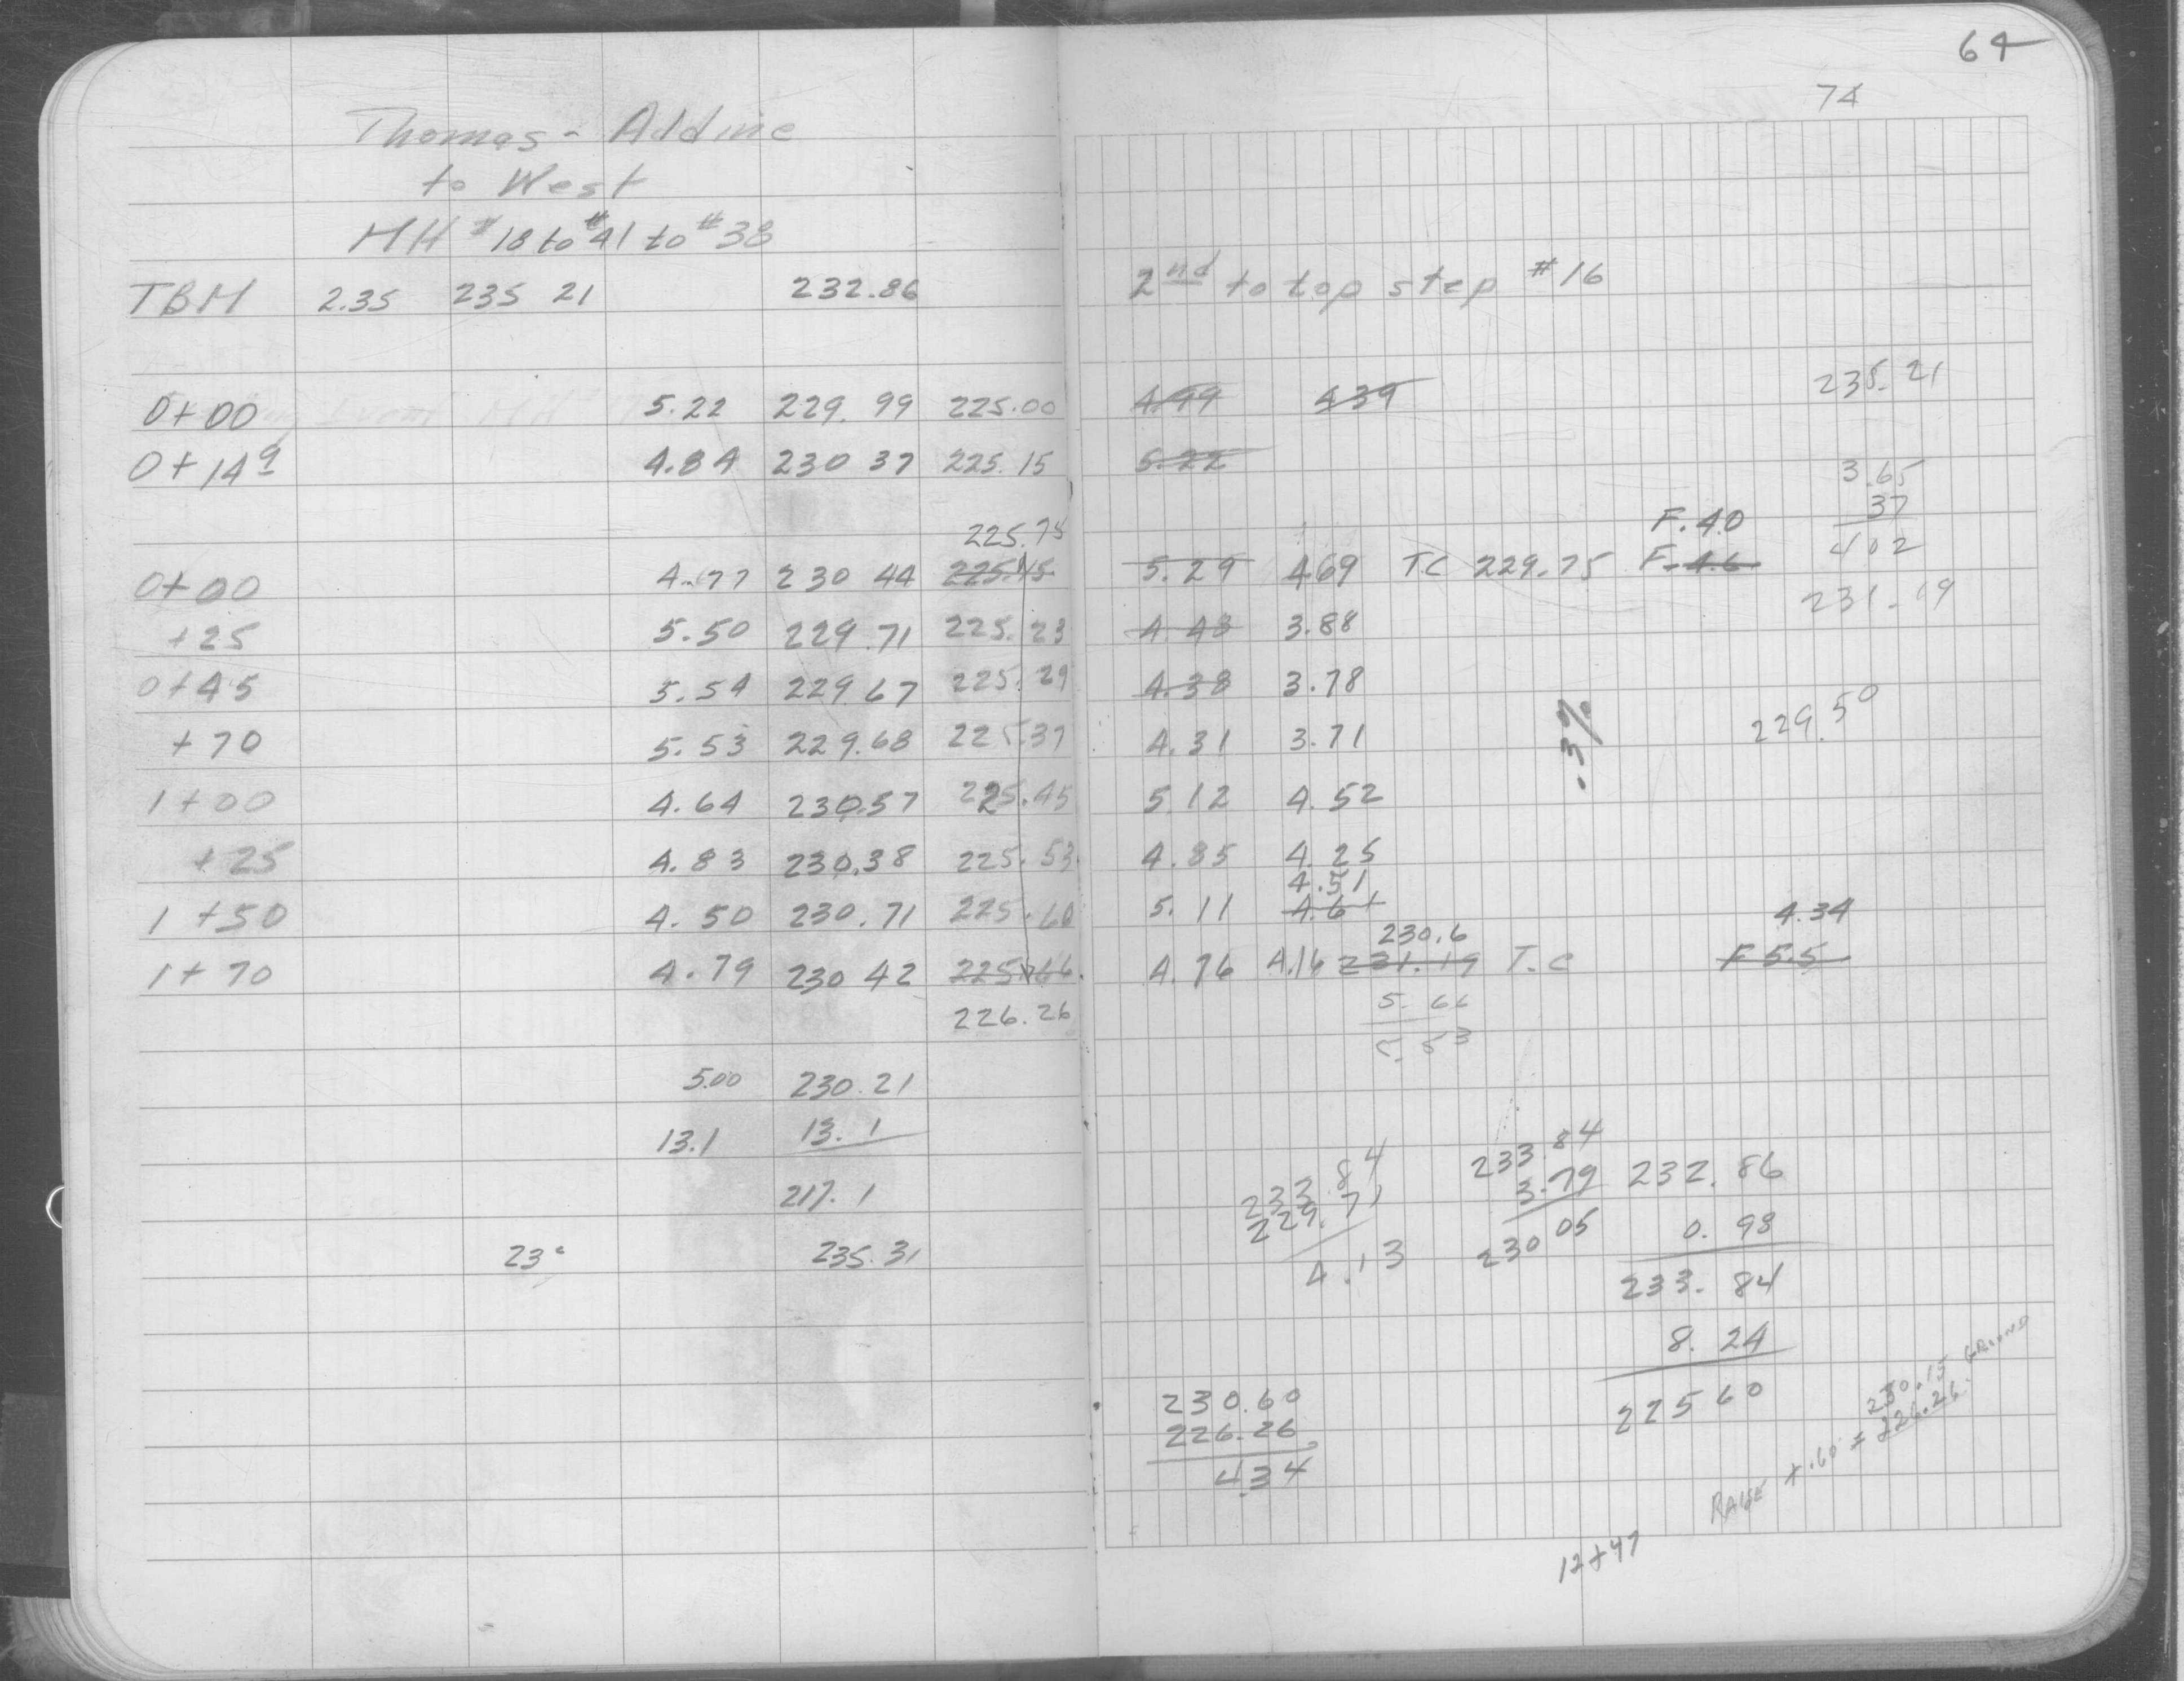 64
74
Thomas - Aldine
to West
MH #18 to #41 to #38
TBM 2.35 235 21 232.86 2nd to top step #16
0+00 5.22 229.99 225.00 4.99 4.39 235.21
0+149 4.84 230 37 225.15 5.22 3.65
37
225.75 F.40 402
0+00 4.77 230 44 225.15 5.29 4.69 TC 229.75 F-4.6
231.19
+25 5.50 229.71 225.23 4.48 3.88
0+45 5.54 229.67 225.29 4.38 3.78
+70 5.53 229.68 225.37 4.31 3.71 .3% 229.50
1+00 4.64 230.57 225.45 5.12 4.52
+25 4.83 230.38 225.53 4.85 4.25
4.51
1+50 4.50 230.71 225.60 5.11 4.61 4.34
230.6
1+70 4.79 230 42 225.66 4.76 4.16 231.19 T.C F 5.5
226.26 5.66
5.53
5.00 230.21
13.1 13.1
217.1
23° 235.31
233.84
229.71
4.13
233.84
3.79
230 05
232.86
0.98
233.84
8.24
225 60
230.60
226.26
4.34
230.15 GROUND
RAISE +.60 = 226.26
12+47